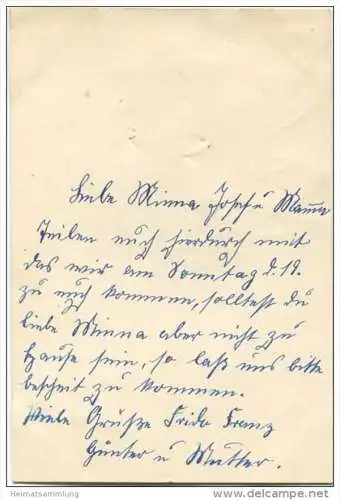 Liebe Minna Josef u Mama
Teilen euch hierdurch mit
das wir am Sonntag d. 19.
zu euch kommen, solltest du
liebe Minna aber nicht zu
Hause sein, so laß uns bitte
bescheit zu kommen.
Viele Grüße Frida Franz
Günter u Mutter.
Heimatsammlung
www.delcampe.net